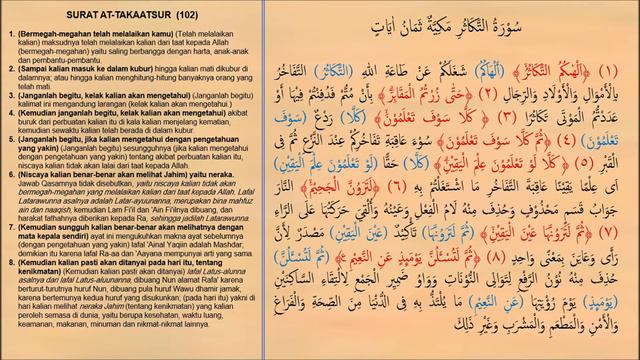 SURAT AT-TAKAATSUR (102)
1. (Bermegah-megahan telah melalaikan kamu) (Telah melalaikan
kalian) maksudnya telah melalaikan kalian dari taat kepada Allah
(bermegah-megahan) yaitu saling berbangga dengan harta, anak-anak
dan pembantu-pembantu.
2. (Sampai kalian masuk ke dalam kubur) hingga kalian mati dikubur di
dalamnya; atau hingga kalian menghitung-hitung banyaknya orang yang
telah mati.
3. (Janganlah begitu, kelak kalian akan mengetahui) (Janganlah begitu)
kalimat ini mengandung larangan (kelak kalian akan mengetahui.)
4. (Kemudian janganlah begitu, kelak kalian akan mengetahui) akibat
buruk dari perbuatan kalian itu di kala kalian menjelang kematian,
kemudian sewaktu kalian telah berada di dalam kubur.
5. (Janganlah begitu, jika kalian mengetahui dengan pengetahuan
yang yakin) (Janganlah begitu) sesungguhnya (jika kalian mengetahui
dengan pengetahuan yang yakin) tentang akibat perbuatan kalian itu,
niscaya kalian tidak akan lalai dari taat kepada Allah.
6. (Niscaya kalian benar-benar akan melihat Jahim) yaitu neraka.
Jawab Qasamnya tidak disebutkan, yaitu niscaya kalian tidak akan
bermegah-megahan yang melalaikan kalian dari taat kepada Allah. Lafal
Latarawunna asalnya adalah Latar-ayuunanna, merupakan bina mahfuz
ain dan naaqish; kemudian Lam Fi'il dan 'Ain Fi'ilnya dibuang, dan
harakat fathahnya diberikan kepada Ra, sehingga jadilah Latarawunna.
7. (Kemudian sungguh kalian benar-benar akan melihatnya dengan
mata kepala sendiri) ayat ini mengukuhkan makna ayat sebelumnya
(dengan pengetahuan yang yakin) lafal 'Ainal Yaqiin adalah Mashdar;
demikian itu karena lafal Ra-aa dan 'Aayana mempunyai arti yang sama.
8. (Kemudian kalian pasti akan ditanyai pada hari itu, tentang
kenikmatan) (Kemudian kalian pasti akan ditanyai) lafal Latus-alunna
asalnya dari lafal Latus-aluunanna, dibuang Nun alamat Rafa' karena
berturut-turutnya huruf Nun, dibuang pula huruf Wawu dhamir jamak,
karena bertemunya kedua huruf yang disukunkan; (pada hari itu) yakni di
hari kalian melihat neraka Jahim (tentang kenikmatan) yang kalian
peroleh semasa di dunia, yaitu berupa kesehatan, waktu luang,
keamanan, makanan, minuman dan nikmat-nikmat lainnya.
سُوْرَةُ التَّكَاثُرِ مَكِيَّةٌ ثَمَانُ اٰيَاتٍ
(١) ﴿اَلْهٰىكُمُ التَّكَاثُرُ﴾ (اَلْهَاكُمُ) شَغَلَكُمْ عَنْ طَاعَةِ اللهِ (التَّكَاثُرُ) التَّفَاخُرُ
بِالْأَمْوَالِ وَالْأَوْلَادِ وَالرِّجَالِ (٢) ﴿حَتّٰى زُرْتُمُ الْمَقَابِرَ﴾ بِأَنْ مُتُّمْ فَدُفِنْتُمْ فِيْهَا أَوْ
عَدَدْتُمُ الْمَوْتٰى تَكَاثُرًا (٣) ﴿كَلَّا سَوْفَ تَعْلَمُوْنَ﴾ (كَلَّا) رَدْعٌ (سَوْفَ
تَعْلَمُوْنَ) (٤) ﴿ثُمَّ كَلَّا سَوْفَ تَعْلَمُوْنَ﴾ سُوْءَ عَاقِبَةِ تَفَاخُرِكُمْ عِنْدَ النَّزْعِ ثُمَّ فِى
الْقَبْرِ (٥) ﴿كَلَّا لَوْ تَعْلَمُوْنَ عِلْمَ الْيَقِيْنِ﴾ (كَلَّا) حَقًّا (لَوْ تَعْلَمُوْنَ عِلْمَ الْيَقِيْنِ)
اَى عِلْمًا يَقِيْنًا عَاقِبَةَ التَّفَاخُرِ مَا اشْتَغَلْتُمْ بِهِ (٦) ﴿لَتَرَوُنَّ الْجَحِيْمَ﴾ النَّارَ
جَوَابُ قَسَمٍ مَحْذُوْفٍ وَحُذِفَ مِنْهُ لَامُ الْفِعْلِ وَعَيْنُهُ وَأُلْقِيَ حَرَكَتُهَا عَلَى الرَّاءِ
(٧) ﴿ثُمَّ لَتَرَوُنَّهَا عَيْنَ الْيَقِيْنِ﴾ (ثُمَّ لَتَرَوُنَّهَا) تَأْكِيْدٌ (عَيْنَ الْيَقِيْنِ) مَصْدَرٌ لِأَنَّ
رَأَى وَعَايَنَ بِمَعْنًى وَاحِدٍ (٨) ﴿ثُمَّ لَتُسْئَلُنَّ يَوْمَئِذٍ عَنِ النَّعِيْمِ﴾ (ثُمَّ لَتُسْئَلُنَّ)
حُذِفَ مِنْهُ نُوْنُ الرَّفْعِ لِتَوَالِى النُّوْنَاتِ وَوَاوُ ضَمِيْرِ الْجَمْعِ لِالْتِقَاءِ السَّاكِنَيْنِ
(يَوْمَئِذٍ) يَوْمَ رُؤْيَتِهَا (عَنِ النَّعِيْمِ) مَا يُلْتَذُّ بِهِ فِى الدُّنْيَا مِنَ الصِّحَّةِ وَالْفَرَاغِ
وَالْأَمْنِ وَالْمَطْعَمِ وَالْمَشْرَبِ وَغَيْرِ ذٰلِكَ